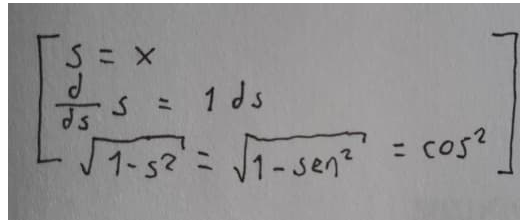 s = x
d/ds s = 1 ds
√1-s² = √1-sen² = cos²